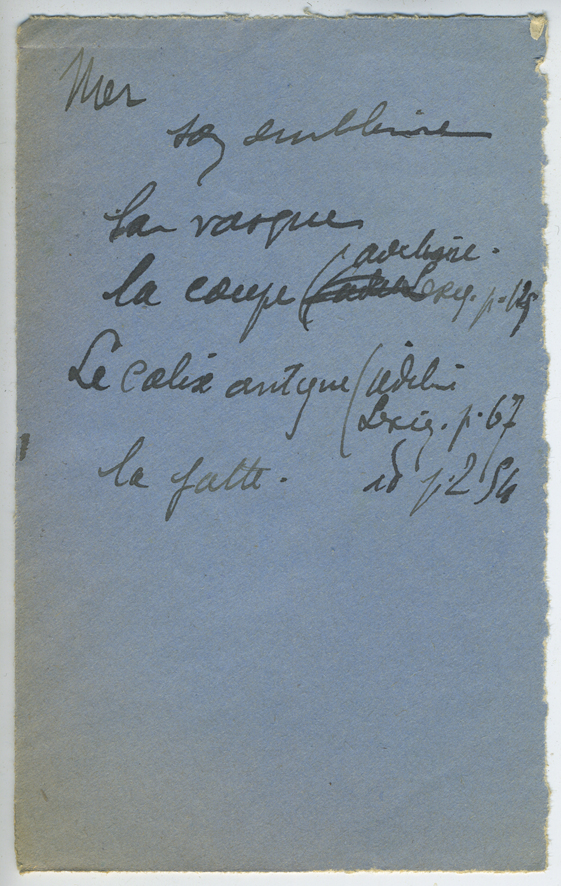 Mer
son emblème
La vasque
la coupe (adeline.
Lexiq. p. 125
Le calix antique (adeline
Lexiq. p. 67
la jatte. id p. 254